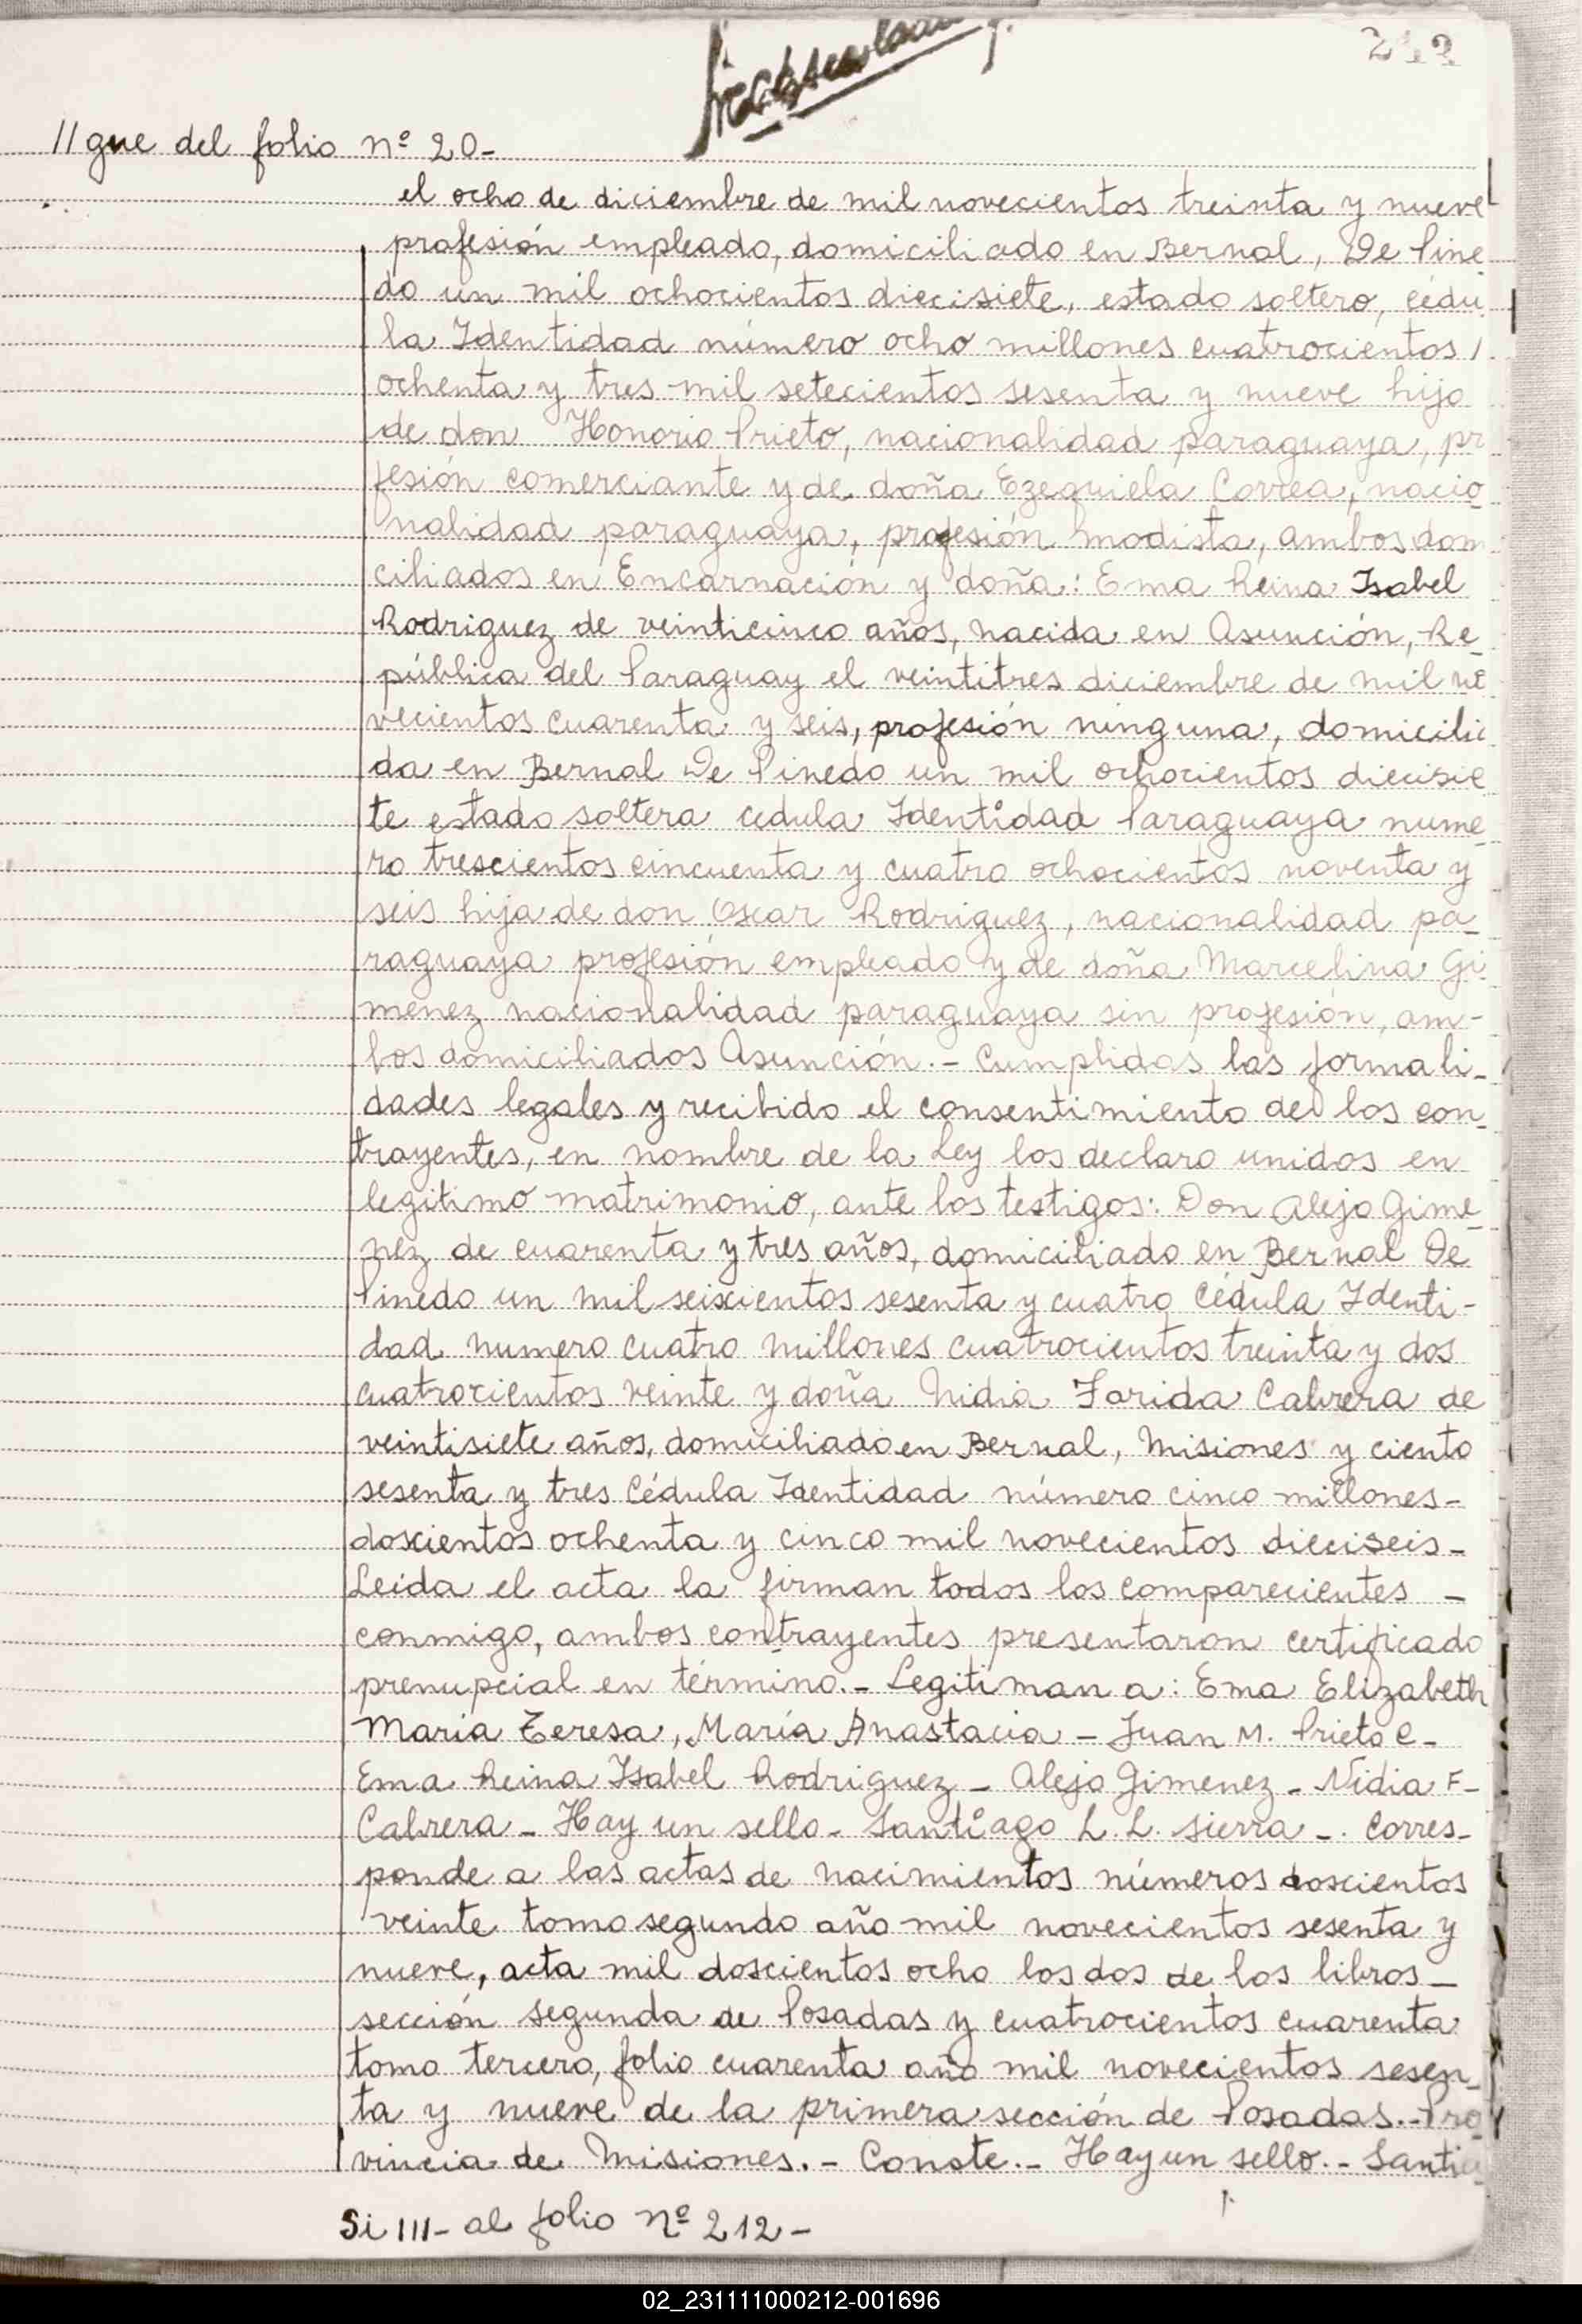 //gue del folio nº 20-
el ocho de diciembre de mil novecientos treinta y nueve
profesión empleado, domiciliado en Bernal, De Pine
do un mil ochocientos diecisiete, estado soltero, cédu
la Identidad número ocho millones cuatrocientos /
ochenta y tres mil setecientos sesenta y nueve hijo
de don Honorio Prieto, nacionalidad paraguaya, pr
fesión comerciante y de doña Ezequiela Correa, nacio_
nalidad paraguaya, profesión modista, ambos dom
ciliados en Encarnación y doña: Ema Reina Isabel
Rodriguez de veinticinco años, nacida en Asunción, Re_
pública del Paraguay el veintitres diciembre de mil no
vecientos cuarenta y seis, profesión ninguna, domicilia
da en Bernal De Pinedo un mil ochocientos diecisie
te estado soltera cedula Identidad Paraguaya nume_
ro trescientos cincuenta y cuatro ochocientos noventa y
seis hija de don Oscar Rodriguez, nacionalidad pa_
raguaya profesión empleado y de doña Marcelina Gi
menez nacionalidad paraguaya sin profesión, am-
bos domiciliados Asunción.- Cumplidas las formali_
dades legales y recibido el consentimiento de los con_
trayentes, en nombre de la Ley los declaro unidos en
legitimo matrimonio, ante los testigos: Don Alejo Gime_
nez de cuarenta y tres años, domiciliado en Bernal De
Pinedo un mil seiscientos sesenta y cuatro Cédula Identi-
dad numero cuatro millones cuatrocientos treinta y dos
cuatrocientos veinte y doña Nidia Farida Cabrera de
veintisiete años, domiciliado en Bernal, Misiones y ciento
sesenta y tres Cédula Identidad número cinco millones-
doscientos ochenta y cinco mil novecientos dieciseis-
Leida el acta la firman todos los comparecientes -
conmigo, ambos contrayentes presentaron certificado
prenupcial en término.- Legitiman a: Ema Elizabeth
Maria Teresa, María Anastacia - Juan M. Prieto C-
Ema Reina Isabel Rodriguez - Alejo Gimenez - Nidia F-
Cabrera - Hay un sello - Santiago L. L. Sierra -. Corres-
ponde a las actas de nacimientos números doscientos
veinte tomo segundo año mil novecientos sesenta y
nueve, acta mil doscientos ocho los dos de los libros_
sección segunda de Posadas y cuatrocientos cuarenta
tomo tercero, folio cuarenta año mil novecientos sesen_
ta y nueve de la primera sección de Posadas.- Pro
vincia de Misiones.- Conste.- Hay un sello.- Santia
Si III- al folio nº 212-
02_231111000212-001696